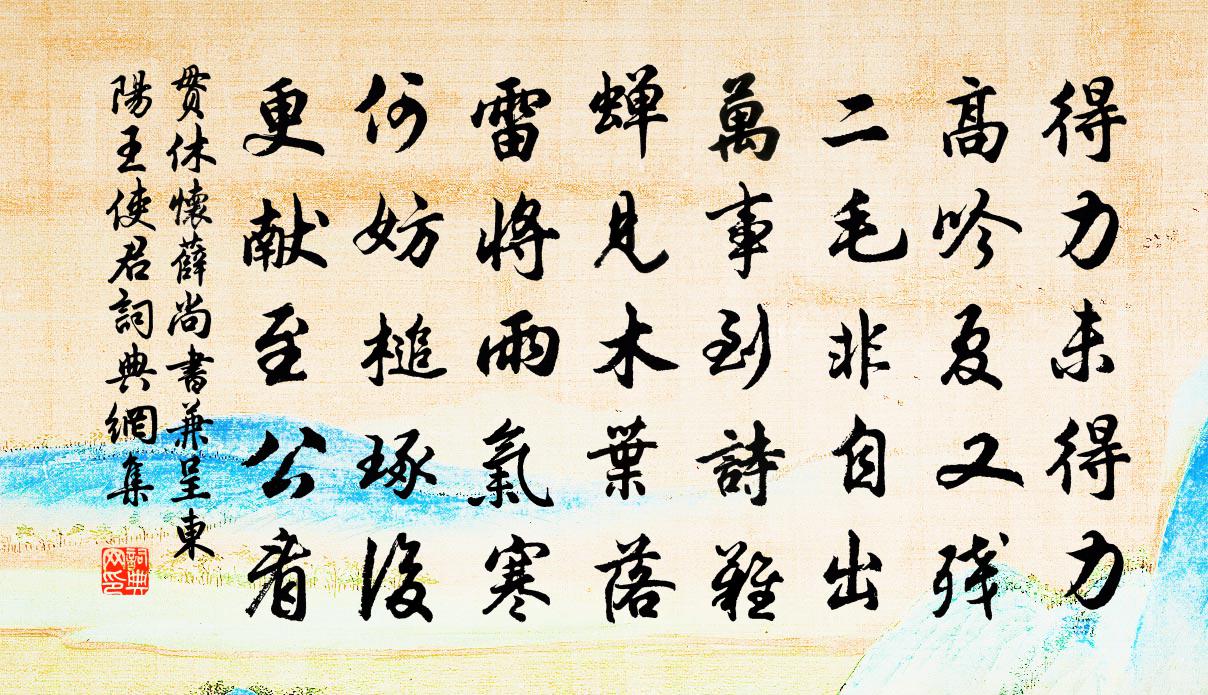 得力未得力
高吟夏又残
二毛非自出
萬事到詩難
蝉見木葉落
雷將雨氣寒
何妨槌琢後
更献至公看
貫休懷薛尚書兼呈東
陽王使君詞典網集
詞典网印